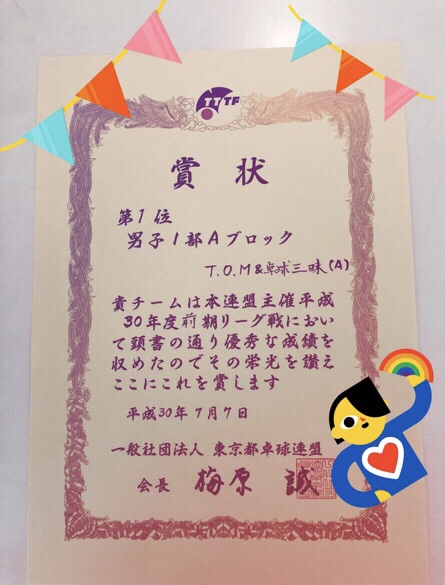 TTTF
賞状
第1位
男子1部Aブロック
T.O.M&卓球三昧(A)
貴チームは本連盟主催平成
30年度前期リーグ戦におい
て頭書の通り優秀な成績を
収めたのでその栄光を讃え
ここにこれを賞します
平成30年7月7日
一般社団法人 東京都卓球連盟
会長 梅原 誠